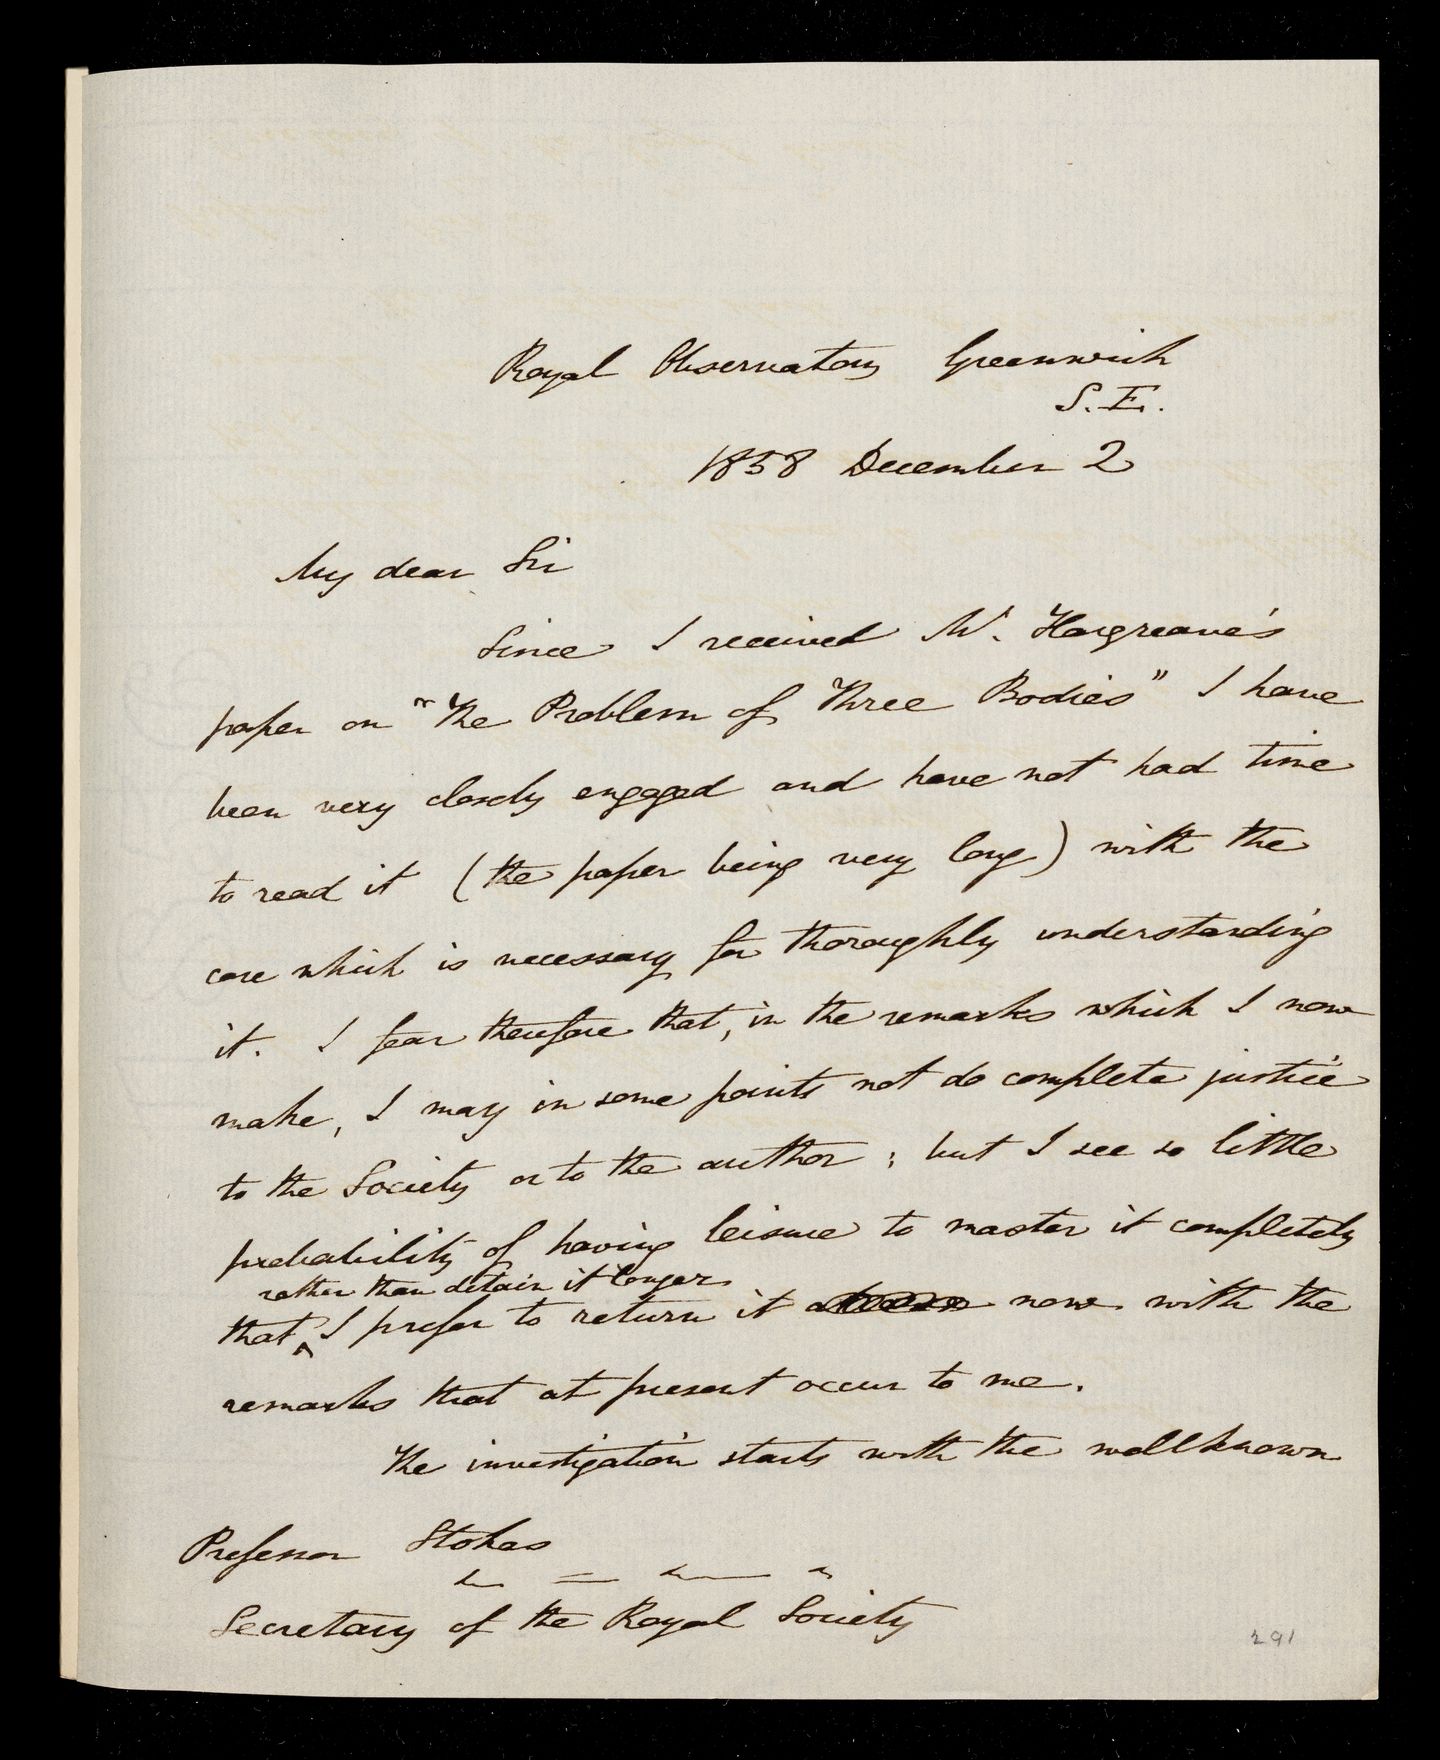 Royal Observatory Greenwich
S.E.
1858 December 2
My dear Sir
Since I received Mr. Hargreave's
paper on "The Problem of Three Bodies" I have
been very closely engaged and have not had time
to read it (the paper being very long) with the
care which is necessary for thoroughly understanding
it. I fear therefore that, in the remarks which I now
make, I may in some points not do complete justice
to the Society or to the author; but I see so little
probability of having leisure to master it completely
rather than detain it longer
that ^ I prefer to return it now with the
remarks that at present occur to me.
The investigation starts with the wellknown
Professor Stokes
Secretary of the Royal Society
291